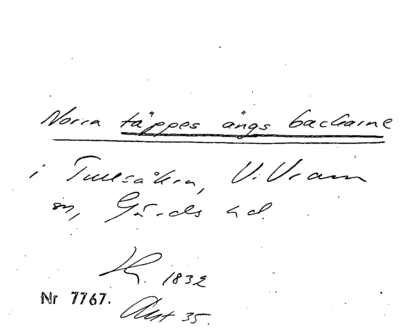 Norra täppes ängs backarne
i Tullsåkra, V. Vram
sn, Gärds hd.
1832
Nr 7767.
Akt 35.